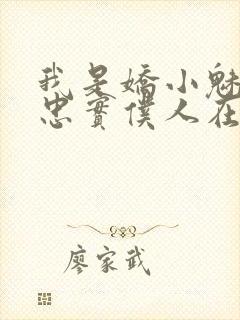 我是嬌小魅
忠實僕人在
廖家武